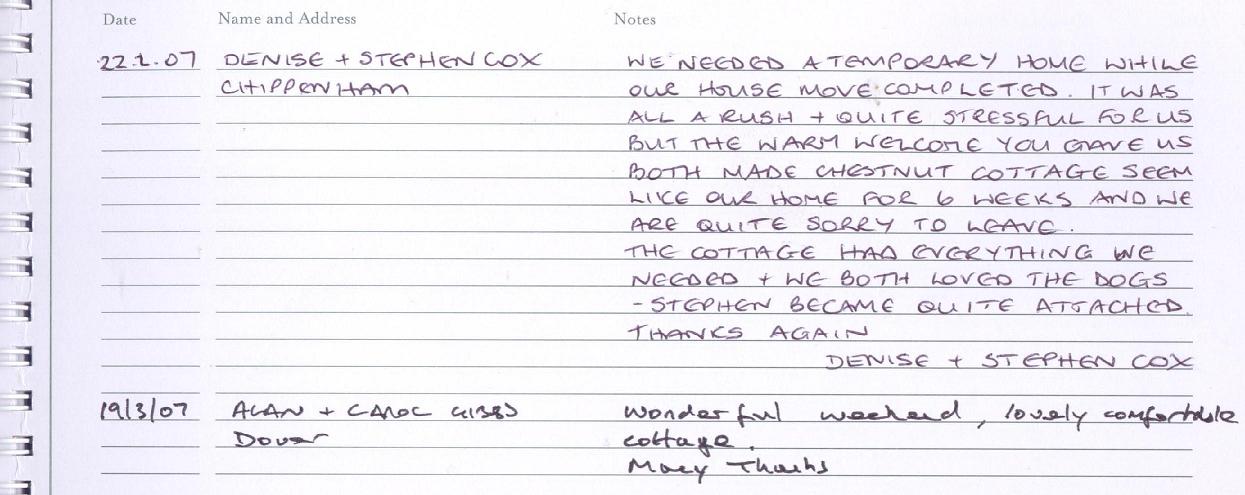 Date Name and Address Notes
22.1.07 DENISE + STEPHEN COX WE NEEDED A TEMPORARY HOME WHILE
CHIPPENHAM OUR HOUSE MOVE COMPLETED. IT WAS
ALL A RUSH + QUITE STRESSFUL FOR US
BUT THE WARM WELCOME YOU GAVE US
BOTH MADE CHESTNUT COTTAGE SEEM
LIKE OUR HOME FOR 6 WEEKS AND WE
ARE QUITE SORRY TO LEAVE.
THE COTTAGE HAD EVERYTHING WE
NEEDED + WE BOTH LOVED THE DOGS
- STEPHEN BECAME QUITE ATTACHED.
THANKS AGAIN
DENISE + STEPHEN COX
19/3/07 ALAN + CAROL GIBBS Wonderful weekend, lovely comfortable
Dover cottage.
Many Thanks